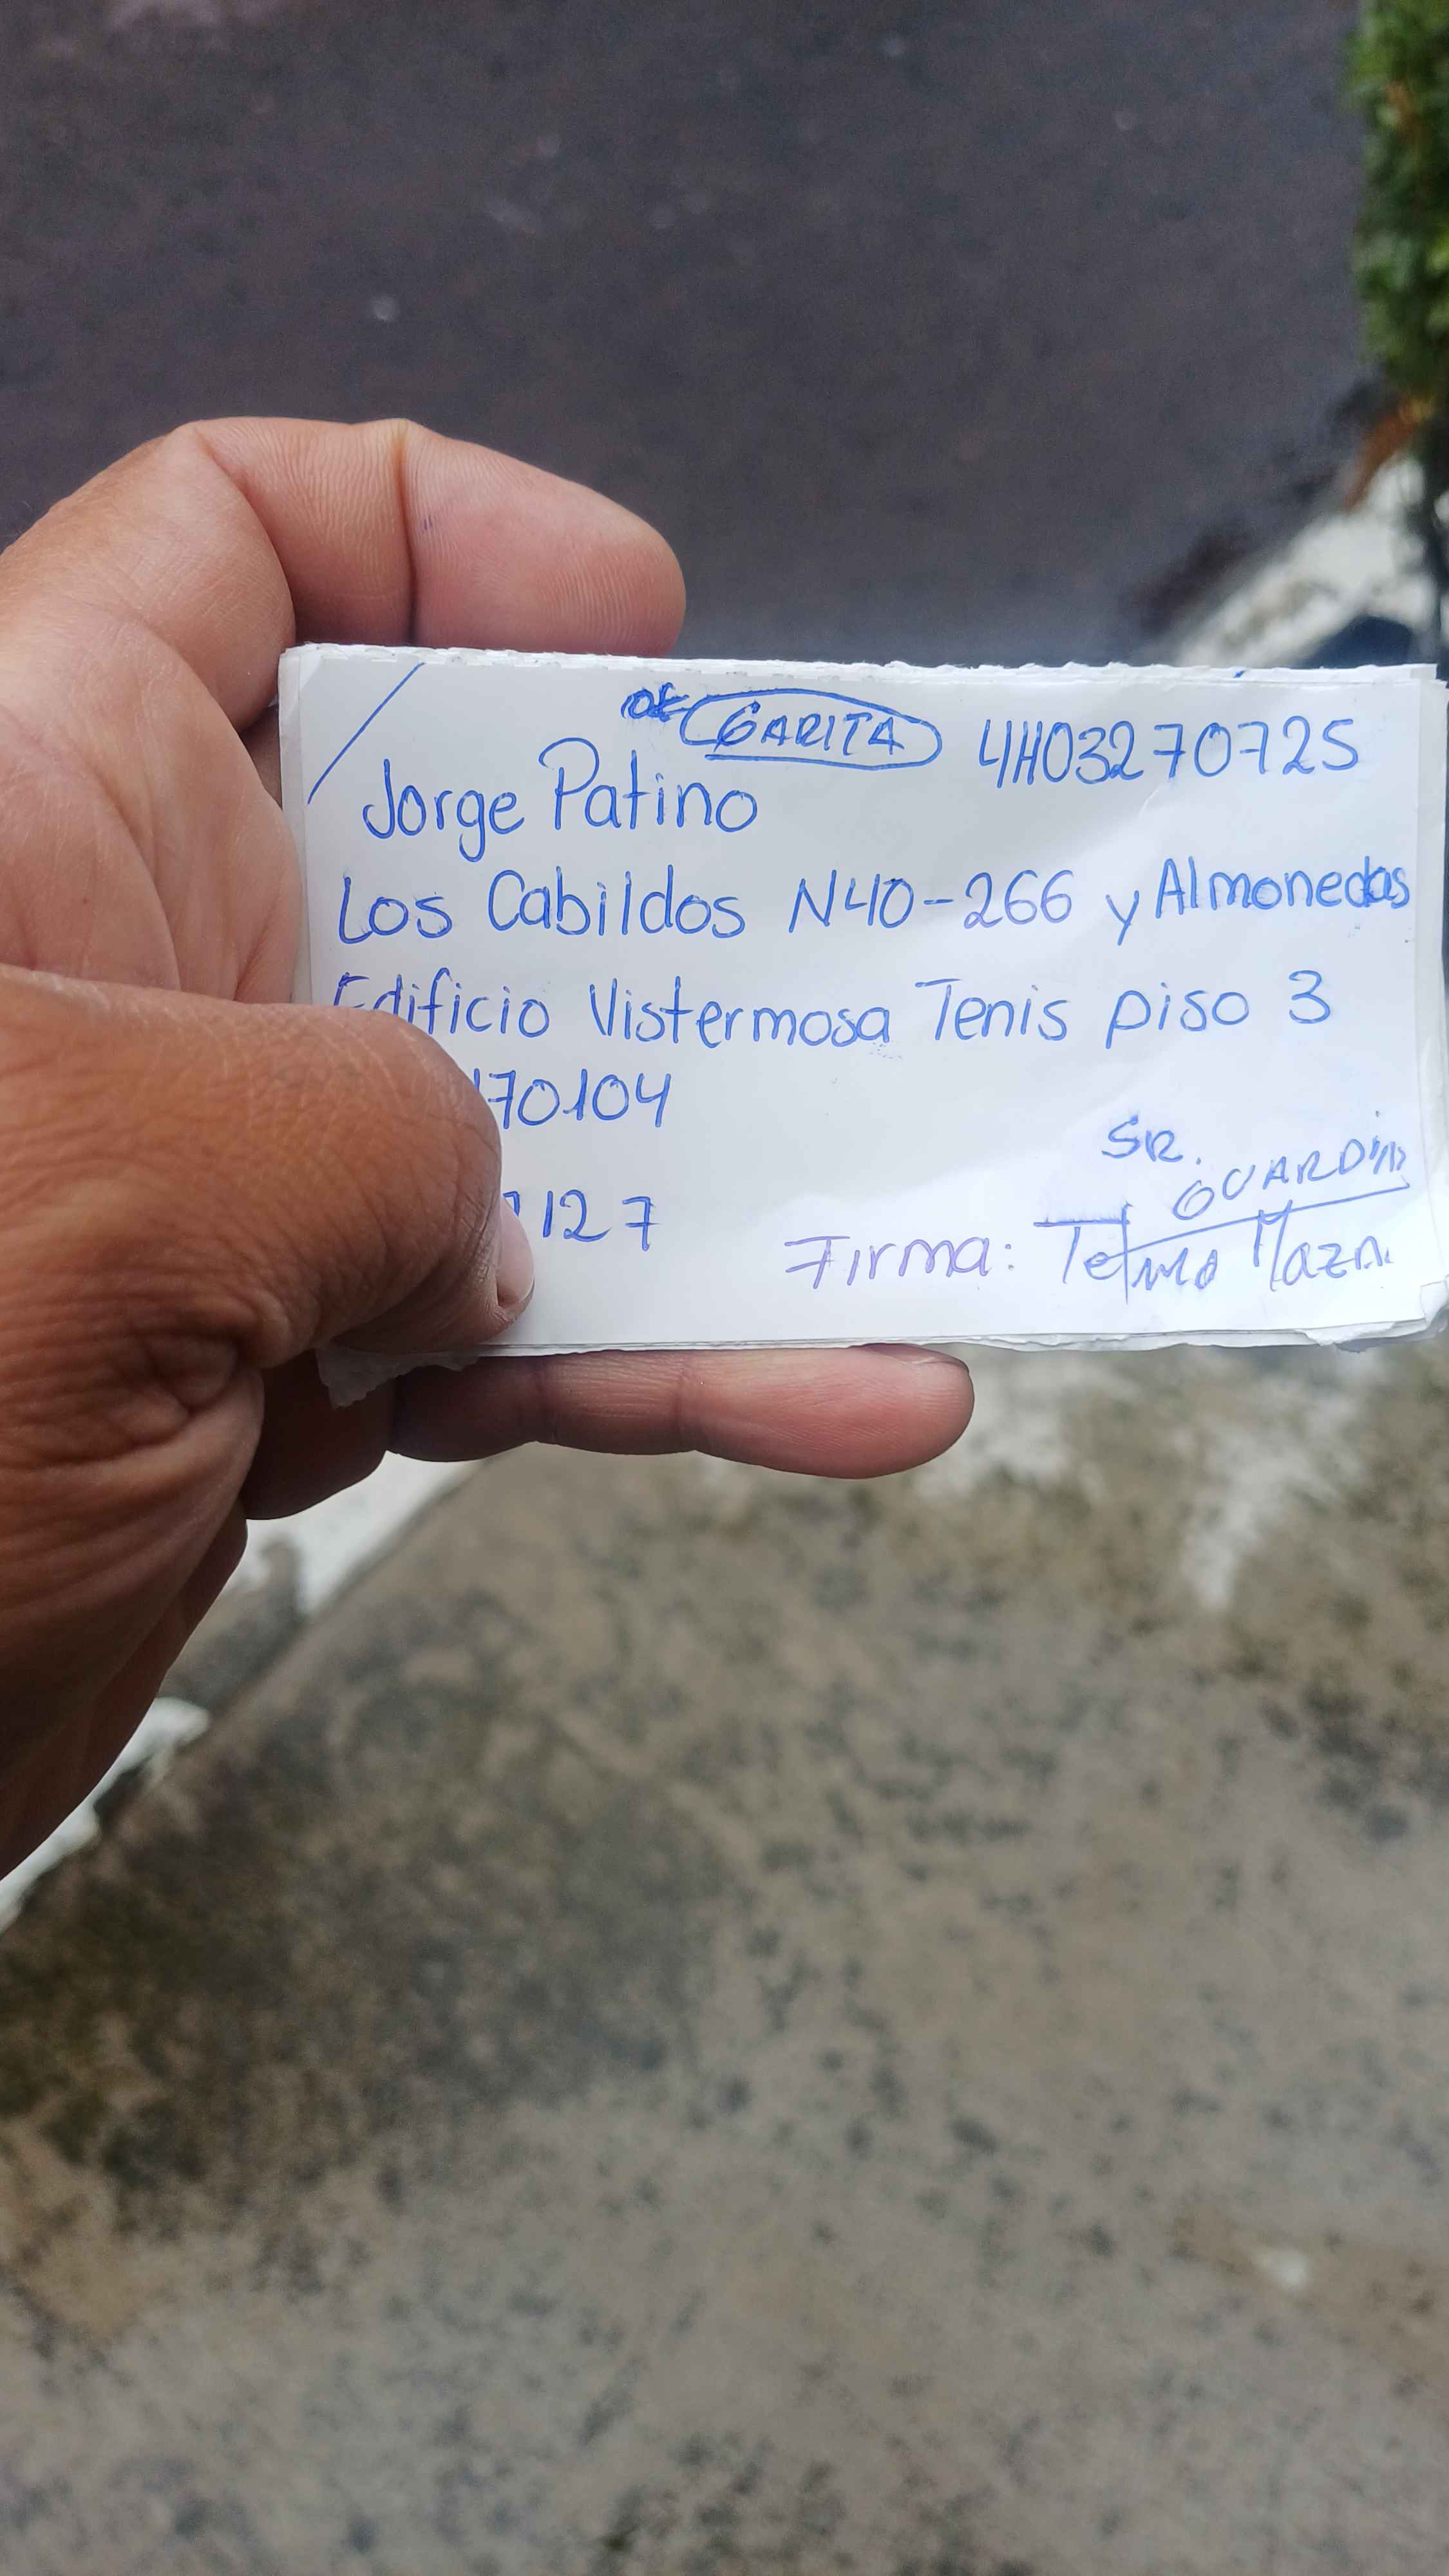 OK GARITA 4H03270725
Jorge Patino
Los Cabildos N40-266 y Almonedas
Edificio Vistermosa Tenis piso 3
170104
127
SR.
GUARDIA
Firma: Telmo